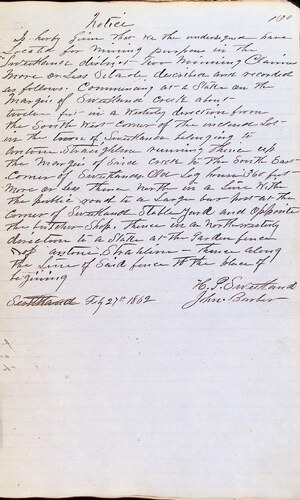 Notice
Is herby given that we the undersigned have
Located for Mining purposes in the
Sweetland district two Mining Claims
More or Less Situate, described and recorded
as follows. Commencing at a Stake on the
Margin of Sweetland Creek about
twelve feet in a Westerly direction from
the South West corner of the inclosed Lot
in the town of Sweetland belonging to
Antone Straughline running thence up
the Margin of Said creek to the South East
Corner of Sweetlands Old Log house 360 feet
More or Less thence North in a Line With
the public road to a Large bar post at the
Corner of Sweetland Stable Yard and Opposite
the butcher Shop, thence in a Northwesterly
direction to a Stake at the Garden fence
of Antone Strahline thence along
the line of Said fence to the place of
begining
H. P. Sweetland
Sweetland Feby 27th 1862
John Barber